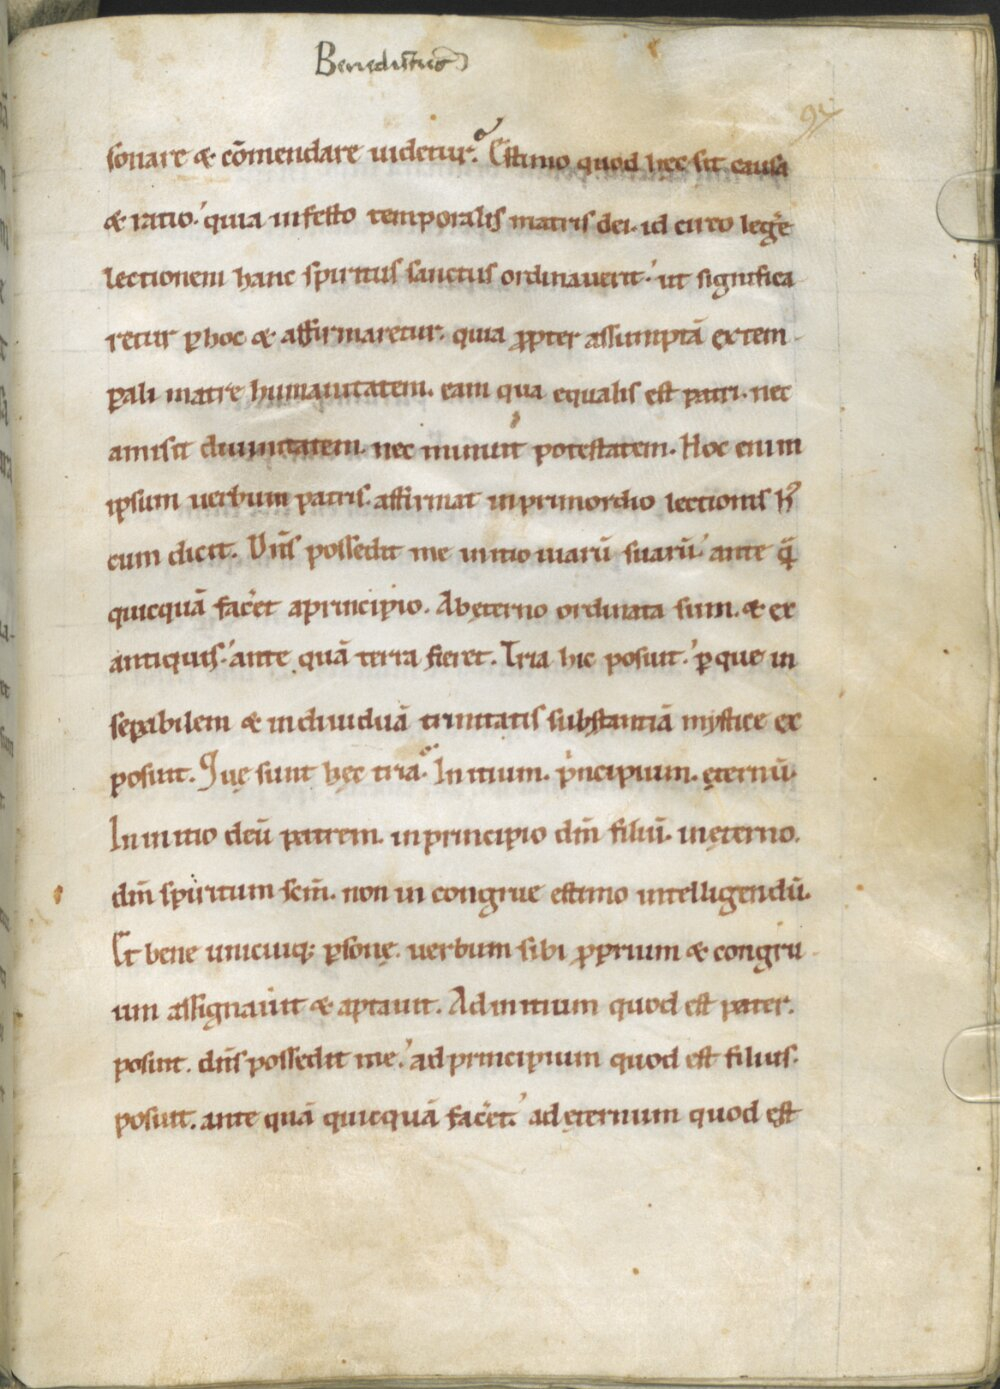 Benedictus
97
sonare & cōmendare uidetur. Estimo quod hęc sit causa
& ratio. quia in festo temporalis matris dei. id circo legere
lectionem hanc spiritus sanctus ordinauerit. ut significa
retur ꝑ hoc & affirmaretur. quia ꝓpter assumptā ex tem
ꝑali matre humanitatem. eam qua equalis est patri. nec
amisit diuinitatem. nec minuit potestatem. Hoc enim
ipsum uerbum patris. affirmat in primordio lectionis
cum dicit. Dn̄s possedit me initio uiarū suarū. ante q̄
quicquā fac̄et a principio. Ab ęterno ordinata sum. & ex
antiquis. ante quā terra fieret. Tria hic posuit. ꝑ que in
seꝑabilem & indiuiduā trinitatis substantiā mystice ex
posuit. Quę sunt hęc tria. Initium. p̓ncipium. ęternū.
In initio deū patrem. in principio dm̄ filiū. in ęterno.
dm̄ spiritum scm̄. non incongrue estimo intelligendū.
Et bene unicuiq; ꝑsonę. uerbum sibi ꝓprium & congru
um assignauit & aptauit. Ad initium quod est pater.
posuit. dn̄s possedit me. ad principium quod est filius.
posuit. ante quā quicquā fac̄et. ad ęternum quod est